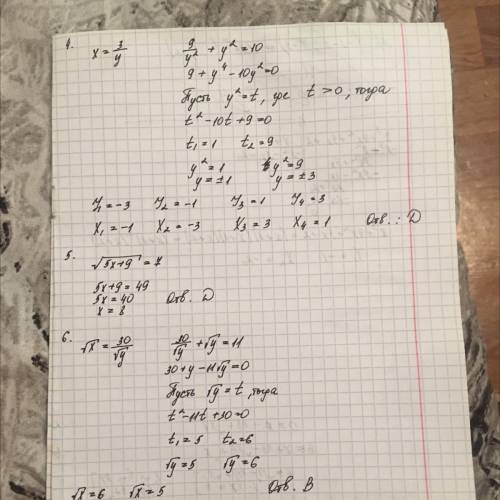 4. x = 3/y    9/y² + y² = 10
9 + y⁴ - 10y² = 0
Пусть y² = t, где t > 0, тогда
t² - 10t + 9 = 0
t₁ = 1    t₂ = 9
y² = 1    y² = 9
y = ±1    y = ±3
y₁ = -3    y₂ = -1    y₃ = 1    y₄ = 3
x₁ = -1    x₂ = -3    x₃ = 3    x₄ = 1    Отв.: D
5. √(5x+9) = 7
5x + 9 = 49
5x = 40    Отв. D
x = 8
6. √x = 30/√y    30/√y + √y = 11
30 + y - 11√y = 0
Пусть √y = t, тогда
t² - 11t + 30 = 0
t₁ = 5    t₂ = 6
√y = 5    √y = 6
√x = 6    √x = 5    Отв. B